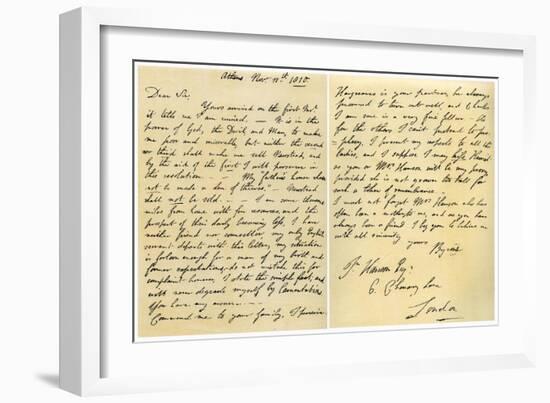 Athens Nov. 11th 1810.
Dear Sir,
Yours arrived on the first Inst.
it tells me I am ruined. — It is in the
power of God, the Devil, and Man, to make
me poor and miserable, but neither the second
nor third shall make me sell Newstead, and
by the aid of the first I will persevere in
this resolution. — My "father's house shall
not be made a den of thieves." — Newstead
shall not be sold. — I am some thousand
miles from home with few resources, and the
prospect of their daily becoming less, I have
neither friend nor counsellor, my only English
servant departs with this letter, my situation
is forlorn enough for a man of my birth and
former expectations; do not mistake this for
complaint however, I state the simple fact, and
will never degrade myself by Lamentations.
You have my answer. —
Commend me to your family, I perceive
Hargreaves is your partner, he always
promised to turn out well, and Charles
I am sure is a very fine fellow. — As
for the others I can't pretend to pro-
=phecy, I present my respects to all the
Ladies, and I suppose I may kiss Harriet
as you or Mrs Hanson will be my proxy,
provided she is not grown too tall for
such a token of remembrance. —
I must not forget Mrs Hanson who has
often been a mother to me, and as you have
always been a friend I beg you to believe me
with all sincerity
yours
Byron
Hanson Esqr
6. Chancery Lane
London